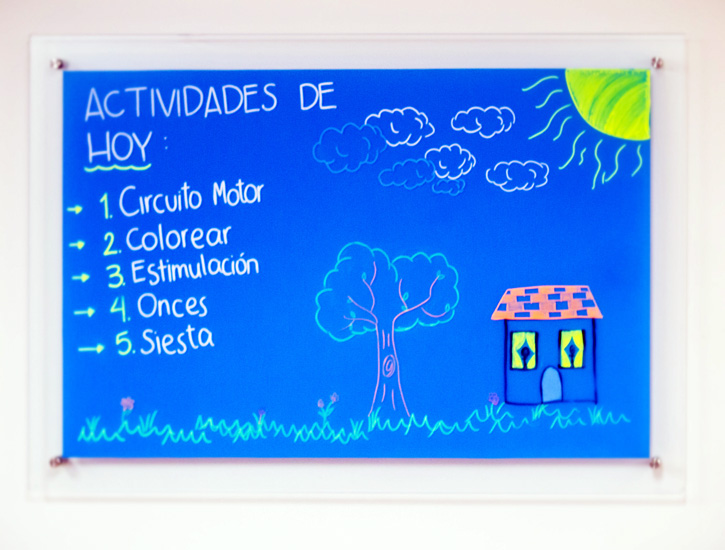 ACTIVIDADES DE
HOY:
→ 1. Circuito Motor
→ 2. Colorear
→ 3. Estimulación
→ 4. Onces
→ 5. Siesta